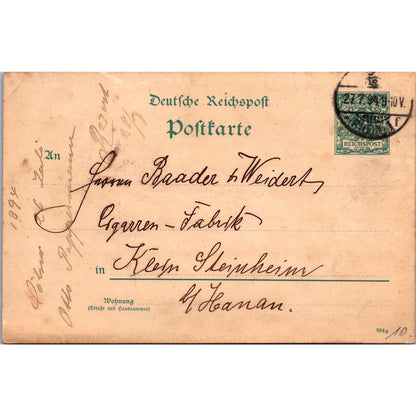 27.7.94.9-10V.
Deutsche Reichspost
Postkarte
REICHSPOST
An
Herren Baader & Weidert
Cigarren-Fabrik
in Klein Steinheim
b/Hanau.
Wohnung
(Straße und Hausnummer)
594g
10.-
1894
Juli
Otto